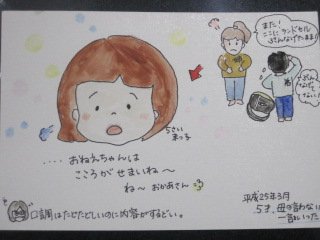 また!
ここにランドセル
ぶんなげたまま!
ぶん
なげて
ない!
5さい
まっ子
.... おねえちゃんは
こころがせまいね〜
ね〜 おかあさん
口調はたどたどしいのに内容がするどい。
平成25年3月
5才、母の言わない
一言いった